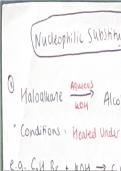 Nucleophilic Substitu
①
Haloalkane Aqueous KOH Alco
* Conditions : Heated Under
e.g. C₂H₅Br + KOH → C